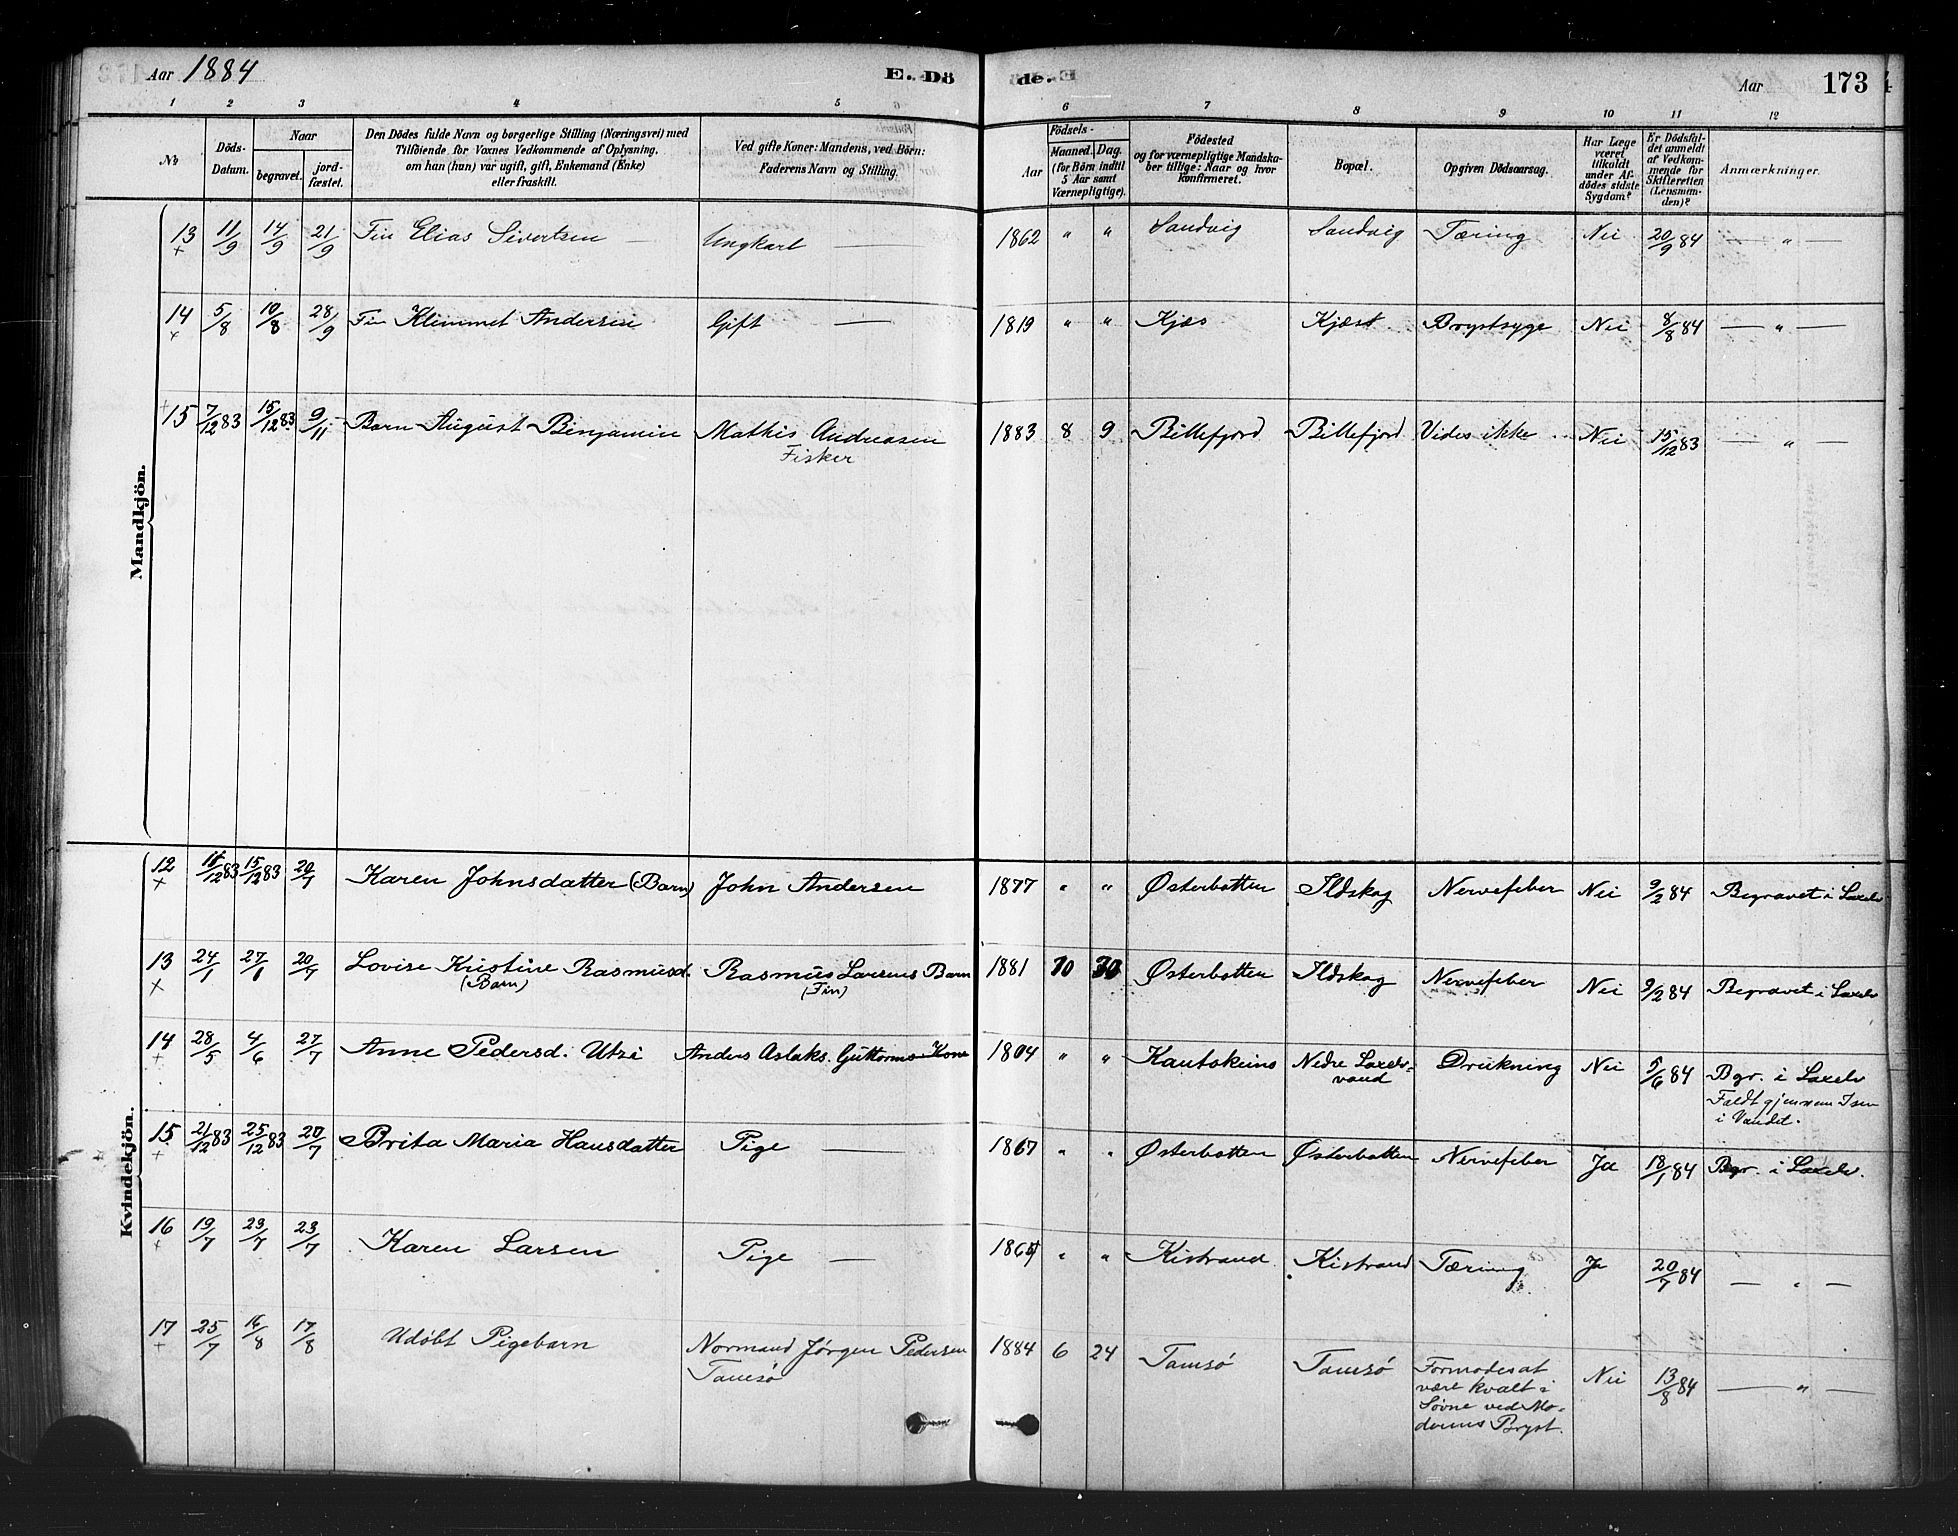 Aar 1884
E. Dö
de.
Aar
173
1 2 3 4 5
6 7 8 9 10 11 12
No
Döds-
Datum.
Naar
begravet.
jord-
fæstet.
Den Dödes fulde Navn og borgerlige Stilling (Næringsvei) med
Tilföiende for Voxnes Vedkommende af Oplysning,
om han (hun) var ugift, gift, Enkemand (Enke)
eller fraskilt.
Ved gifte Koner: Mandens, ved Börn:
Faderens Navn og Stilling.
Födsels-
Aar
Maaned.
Dag.
(for Börn indtil
5 Aar samt
Værnepligtige).
Födested
og for værnepligtige Mandska-
ber tillige: Naar og hvor
konfirmeret.
Bopæl.
Opgiven Dödsaarsag.
Har Læge
været
tilkaldt
under Af-
dödes sidste
Sygdom?
Er Dödsfal-
det anmeldt
af Vedkom-
mende for
Skifteretten
(Lensman-
den)?
Anmærkninger.
Mandkjön.
13 11/9 14/9 21/9 Fin Elias Sivertsen — Ungkarl — 1862 " " Sandvig Sandvig Tæring Nei 20/9 84 — " —
14 5/8 10/8 28/9 Fin Klemmet Andersen Gift — 1819 " " Kjæs Kjæs Brystsyge Nei 8/8 84 — " —
15 7/12 83 15/12 83 9/11 Barn August Benjamin Mathis Andreasen 1883 8 9 Billefjord Billefjord Vides ikke Nei 15/12 83 — " —
Fisker
Kvindekjön.
12 11/12 83 15/12 83 20/7 Karen Johnsdatter (Barn) John Andersen 1877 " " Østerbotten Ildskog Nervefeber Nei 9/2 84 Begravet i Laxelv
13 24/1 27/1 20/7 Lovise Kristine Rasmusd. Rasmus Larsens Barn 1881 10 30 Østerbotten Ildskog Nervefeber Nei 9/2 84 Begravet i Laxelv
(Barn) (Fin)
14 28/5 4/6 27/7 Anne Pedersd. Utsi Anders Aslaks. Guttorms Kone 1804 " " Kautokeino Nedre Laxelv- Drukning Nei 5/6 84 Bgr. i Laxelv
vand Faldt gjennem Isen
i Vandet.
15 21/12 83 25/12 83 20/7 Brita Maria Hansdatter Pige — 1867 " " Østerbotten Østerbotten Nervefeber Ja 18/1 84 Bgr. i Laxelv.
16 19/7 23/7 23/7 Karen Larsen Pige — " " Kistrand Kistrand Tæring Ja 20/7 84 — " —
17 25/7 /8 17/8 Udøbt Pigebarn Normand Jørgen Pedersen 1884 6 24 Tamsø Tamsø Formodes at Nei 13/8 84 — " —
Tamsø være kvalt i
Søvne ved Mo-
derens Bryst.